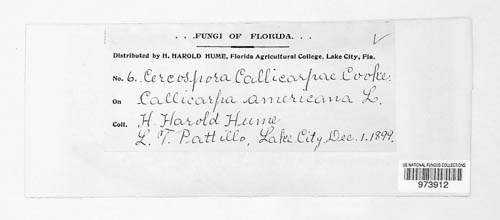 . . .FUNGI OF FLORIDA. . .
Distributed by H. HAROLD HUME, Florida Agricultural College, Lake City, Fla.
No. 6. Cercospora Callicarpae Cooke.
On Callicarpa americana L.
Coll. H. Harold Hume
L. T. Pattillo, Lake City, Dec. 1. 1899.
US NATIONAL FUNGUS COLLECTIONS
973912